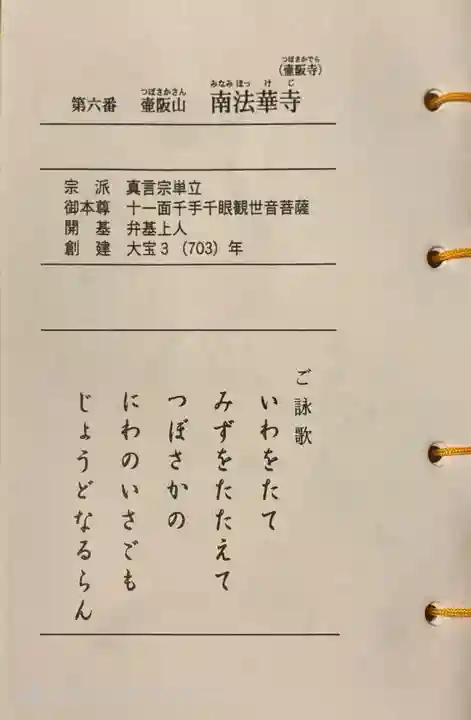 つぼさかでら
（壷阪寺）
つぼさかさん みなみ ほっ け じ
第六番 壷阪山 南法華寺
宗 派 真言宗単立
御本尊 十一面千手千眼観世音菩薩
開 基 弁基上人
創 建 大宝３（703）年
ご詠歌
いわをたて
みずをたたえて
つぼさかの
にわのいさごも
じょうどなるらん